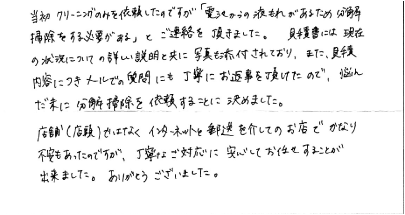 当初 クリーニングのみを依頼したのですが「電池からの液もれがあるため 分解
掃除をする必要がある」と ご連絡を 頂きました。 見積書には 現在
の状況についての詳しい説明と共に 写真も添付されており、また、見積
内容につき メールでの質問にも 丁寧にお返事を頂けたので、悩ん
だ末に 分解掃除を 依頼することに 決めました。
店舗(店頭)ではなく インターネットと 郵送を介してのお店で かなり
不安もあったのですが、丁寧なご対応に 安心してお任せすることが
出来ました。 ありがとうございました。